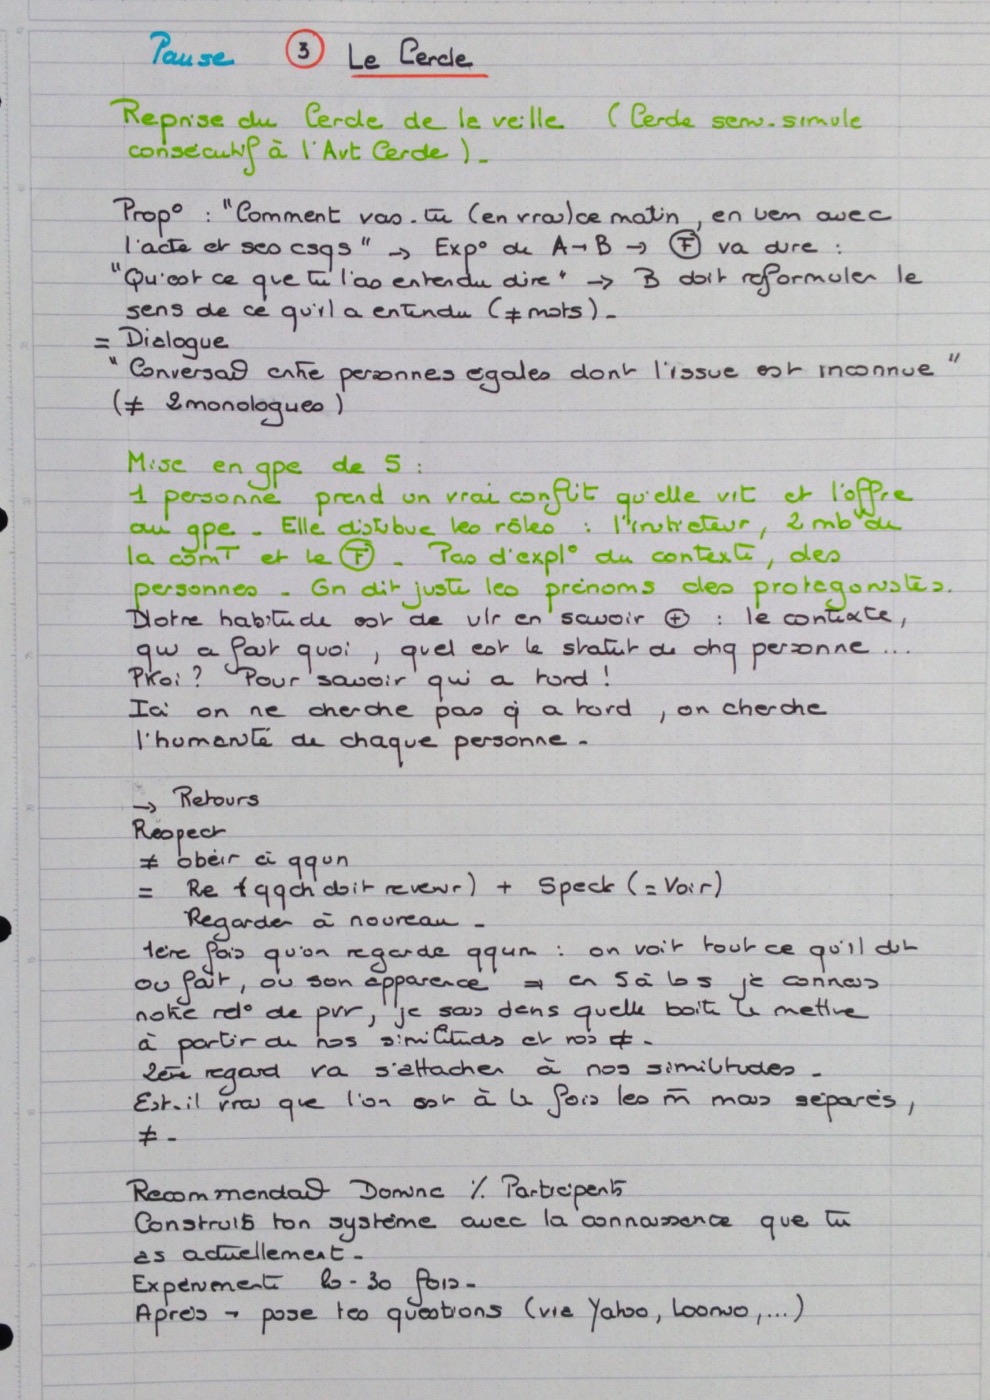 Pause ③ Le Cercle
Reprise du Cercle de la veille ( Cercle semi-simulé
consécutif à l'Avt Cercle ).
Prop° : "Comment vas-tu (en vrai) ce matin, en lien avec
l'acte et ses csqs" → Exp° de A → B → Ⓕ va dire :
"Qu'est ce que tu l'as entendu dire" → B doit reformuler le
sens de ce qu'il a entendu (≠ mots).
= Dialogue
"Conversa⁰ entre personnes égales dont l'issue est inconnue"
(≠ 2 monologues)
Mise en gpe de 5 :
1 personne prend un vrai conflit qu'elle vit et l'offre
au gpe. Elle distribue les rôles : l'initieteur, 2 mb de
la comT et le Ⓕ. Pas d'expl° du contexte, des
personnes. On dit juste les prénoms des protagonistes.
Notre habitude est de vlr en savoir ⊕ : le contexte,
qui a fait quoi, quel est le statut de chq personne ...
Pkoi ? Pour savoir qui a tord !
Ici on ne cherche pas q̇ a tord, on cherche
l'humanité de chaque personne.
→ Retours
Respect
≠ obéir à qqun
= Re (qqch doit revenir) + Speck (= Voir)
Regarder à nouveau.
1ère fois qu'on regarde qqun : on voit tout ce qu'il dit
ou fait, ou son apparence ⇒ en 5 à 10 s je connais
notre rel° de pvr, je sais dans quelle boîte le mettre
à partir de nos similituds et nos ≠.
2ème regard va s'attacher à nos similitudes.
Est-il vrai que l'on est à la fois les m̄ mais séparés,
≠.
Recommenda⁰ Dominc % Participants
Construis ton système avec la connaissance que tu
as actuellement.
Expérimente 20-30 fois.
Après → pose tes questions (via Yahoo, Loomio, ...)